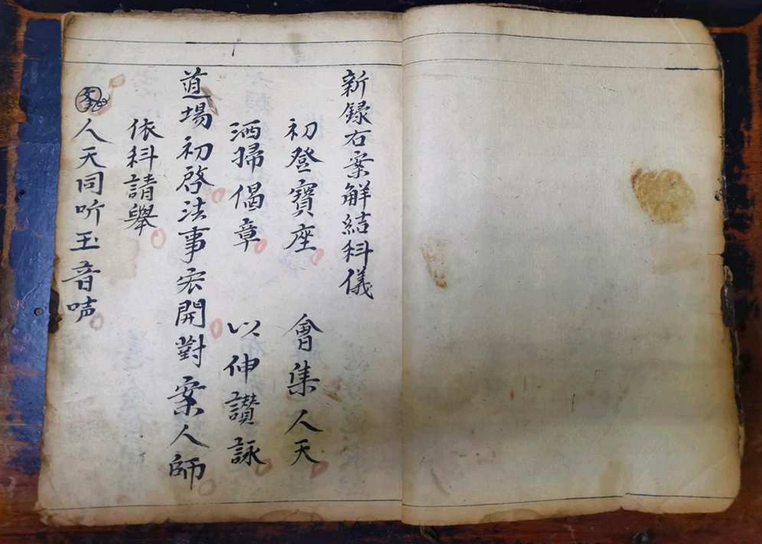 新録右案解結科儀
初登寶座 會集人天
洒掃偈章 以伸讃詠
道場初啓法事宏開對案人師
依科請舉
人天同听玉音声